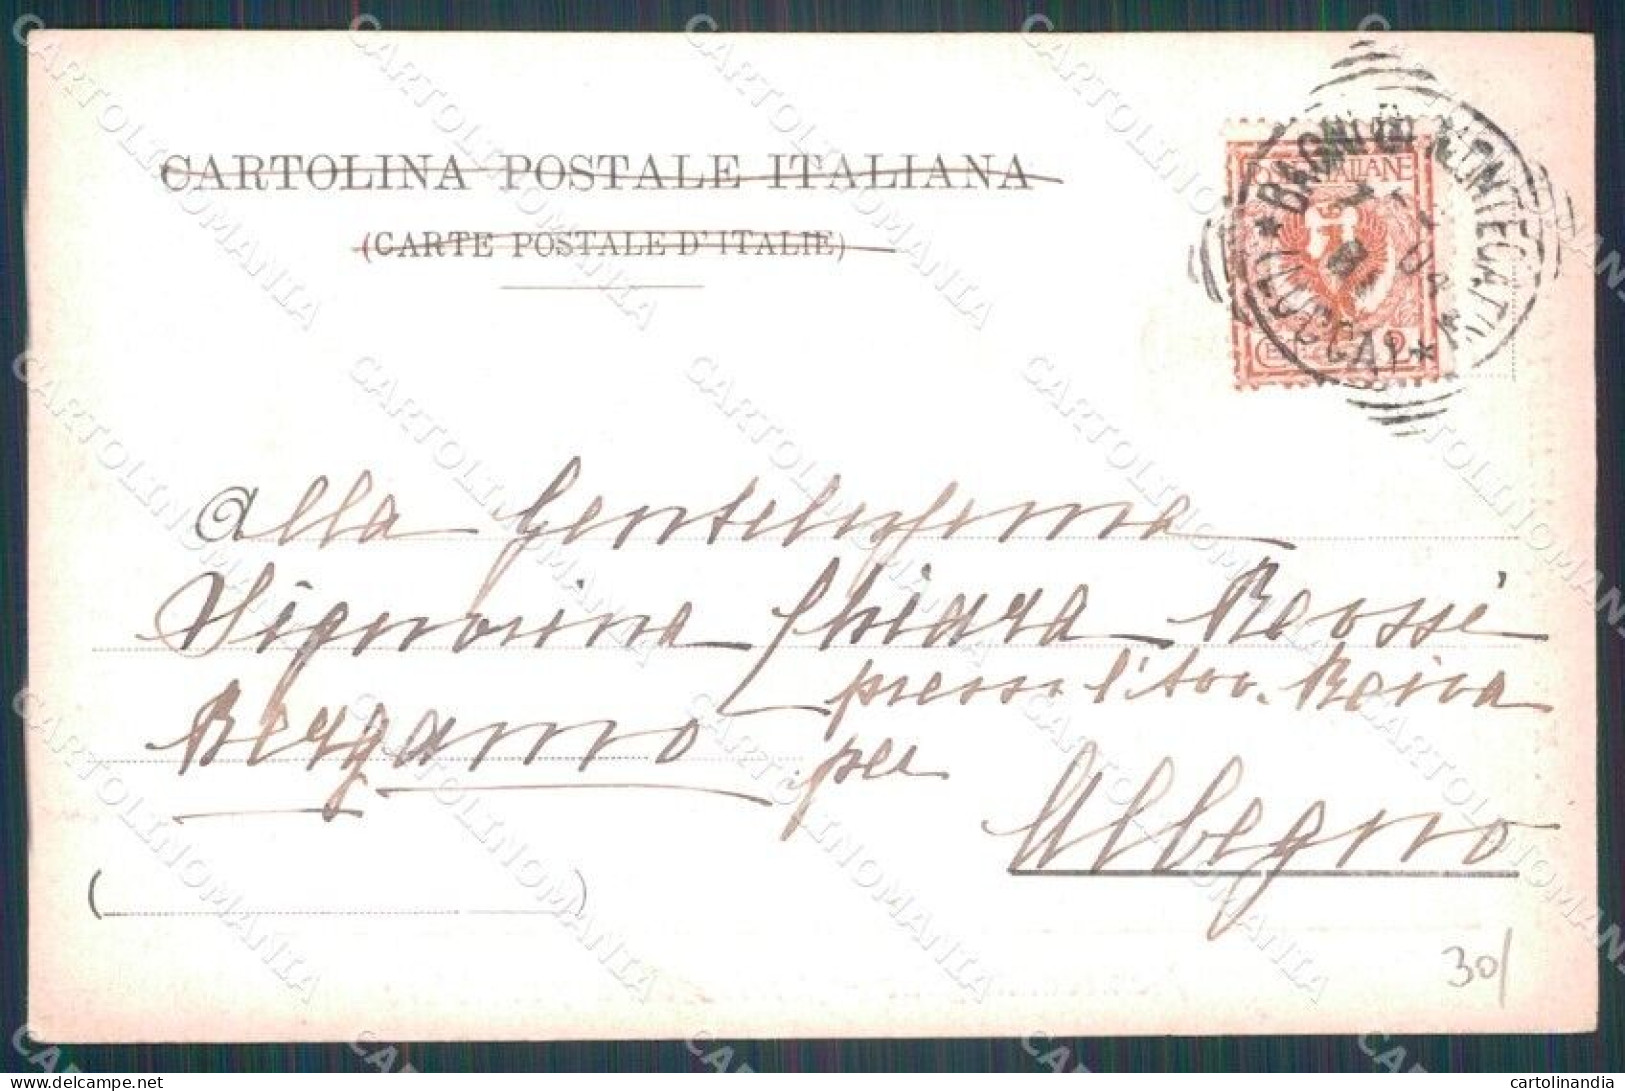 CARTOLINA POSTALE ITALIANA
(CARTE POSTALE D'ITALIE)
BAGNI DI MONTECATINI
(LUCCA)
POSTE ITALIANE
2
Alla Gentilissima
Signorina Chiara Rossi
presso l'Avv.
Bergamo
per
Albegno
30/
CARTOLINOMANIA
delcampe.net
cartolinandia